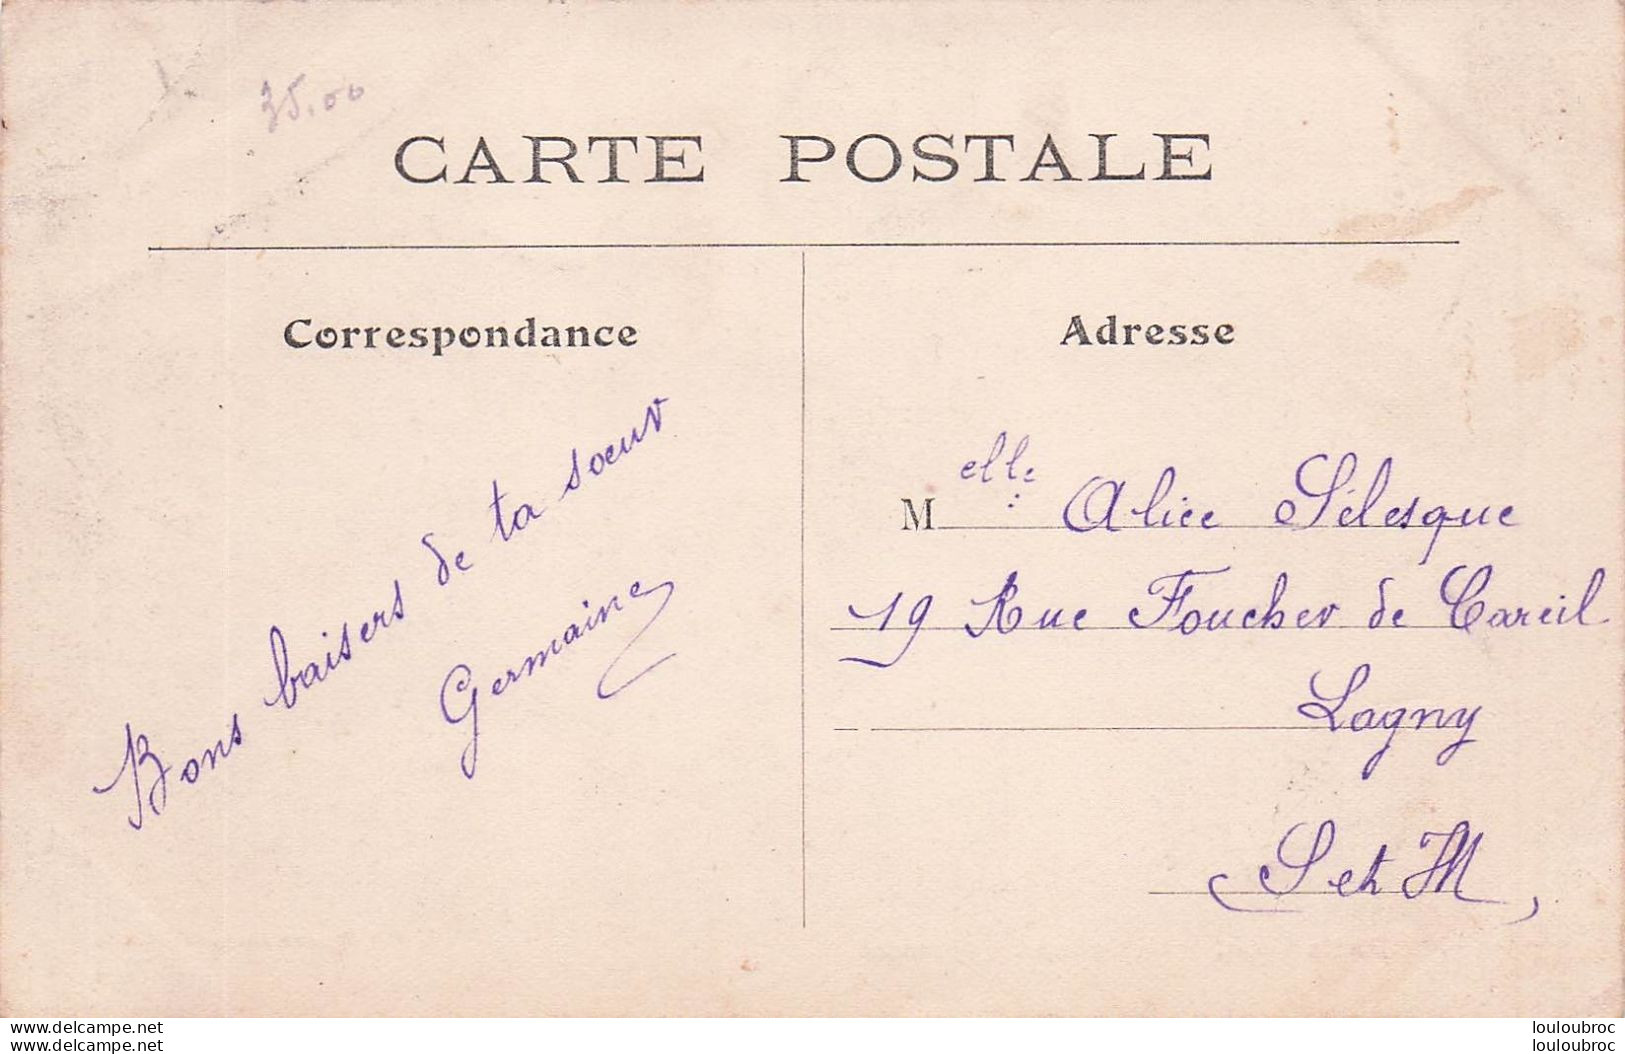 35.00
CARTE POSTALE
Correspondance
Bons baisers de ta sœur
Germaine
Adresse
M elle Alice Sélesque
19 Rue Foucher de Careil
Lagny
S et M,
www.delcampe.net
www.delcampe.net
louloubroc
louloubroc